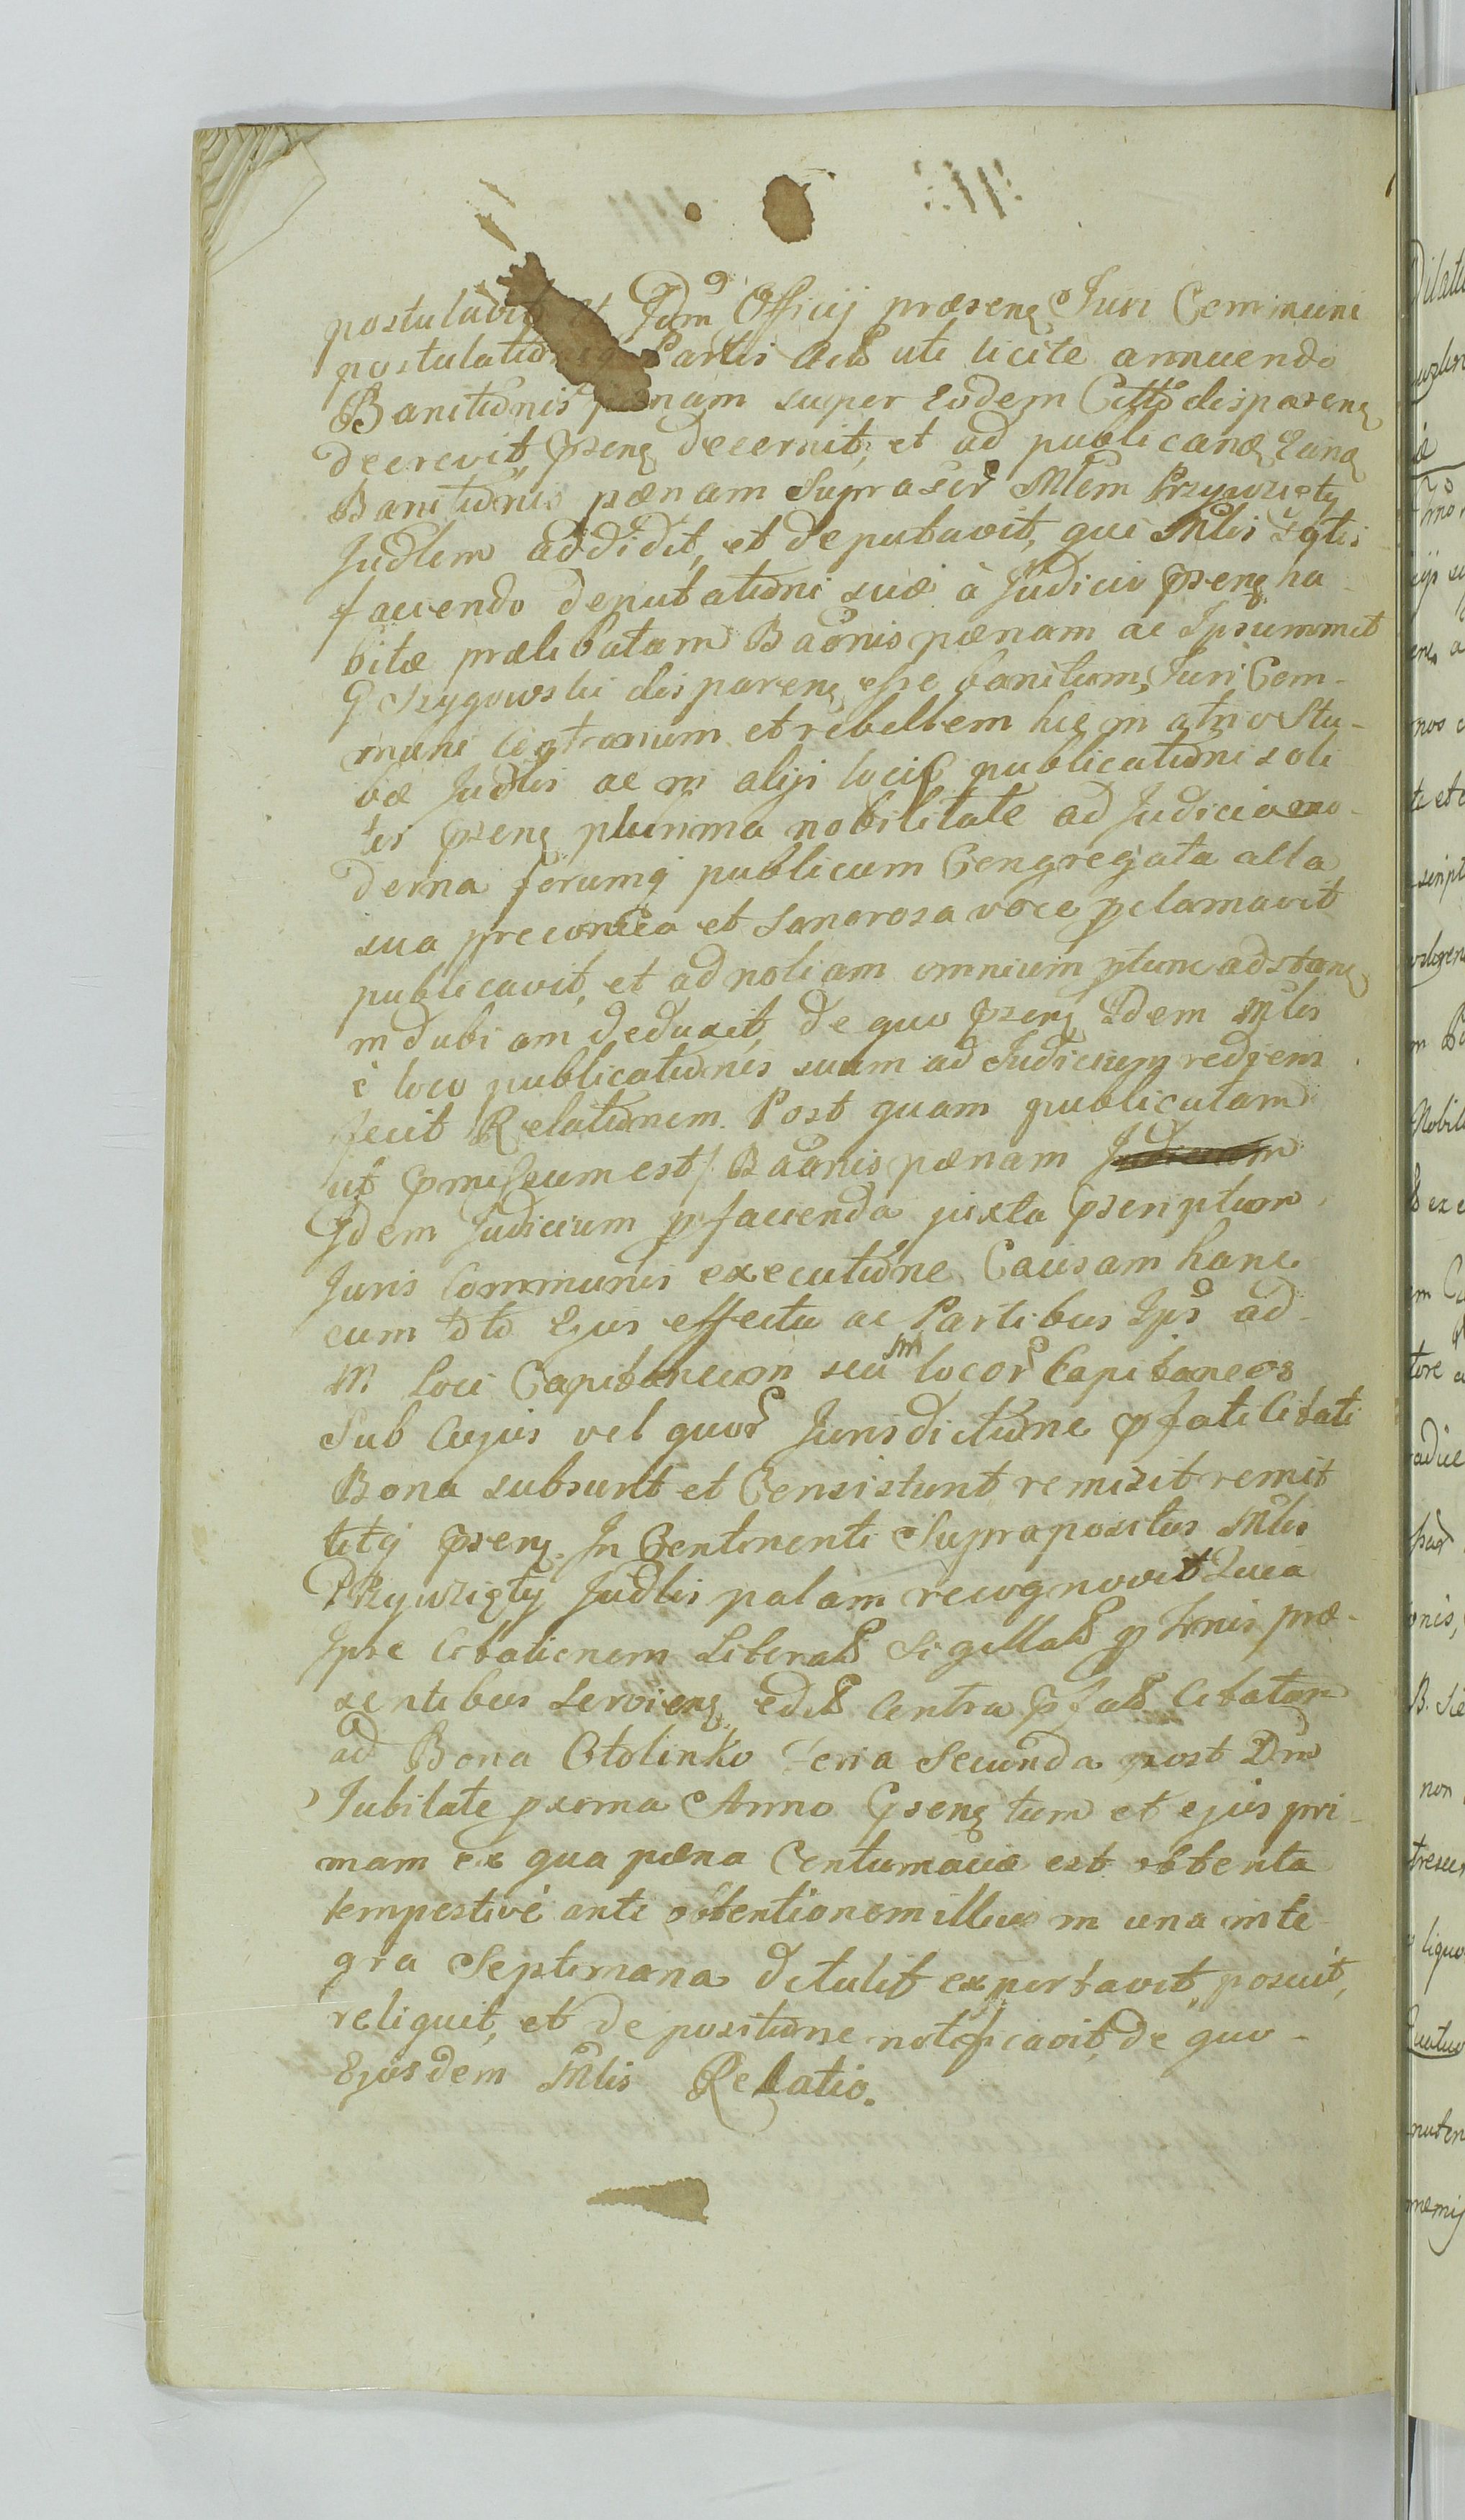 postulavit et Judm Officij præsenę Juri Communi
Partis Act uti licite annuendo
Banitionis pænam super Eodem Citto disparenę
decrevit, pseńę decernit, et ad publicanđ Eanđ
Banitionis pænam Suprascr Mlem Przywzięty
Judlem addidit, et deputavit, qui Mlis
faciendo deputationi suæ à Judicio psenę ha-
bitæ prælibatam Baonis pænam ac Ipsummet
G Szygowski disparenę esse banitum, Juri Com-
muni Contrarium et rebellem hic in atrio Stu-
bæ Judlis ac in alijs locis publicationi soli
tis psenę plurima nobilitate ad Judicia mo-
derna forumq publicum Congregata alta
sua preconica et sonorosa voce pclamavit
publicavit, et ad notiam omnium ptunc adstanę
indubiam deduxit, de quo psenę Idem Mlis
è loco publicationis suam ad Judicium rediens
fecit Relationem. Post quam publicatam
ut pmissum est/ Baonis pænam Judicium
Idem Judicium p facienda juxta pscriptum
Juris Communis executione Causam hanc
cum toto Ejus effectu ac Partibus Ips ad
M. loci Capitaneum seu MM locor Capitaneos
Sub Cujus vel quor Jurisdictione pfati Citati
Bona subsunt et Consistunt remisit remit
titq psenę. In Continenti Suprapositus Mlis
Przywzięty Judlis palam recognovit Quia
Ipse Citationem Literat Sigillat p Trnis præ-
sentibus servienę edit Contra pfat Citatum
ad Bona Otolinko Feria Secunda post Dm
Jubilate pxima Anno psenę tum et ejus pri-
mam ex qua pæna Contumaciæ est obtenta
tempestivè ante obtentionem illius in una inte-
gra Septimana detulit exportavit, posuit,
reliquit, et de positione notificavit, de quo-
Ejusdem Mlis Relatio.